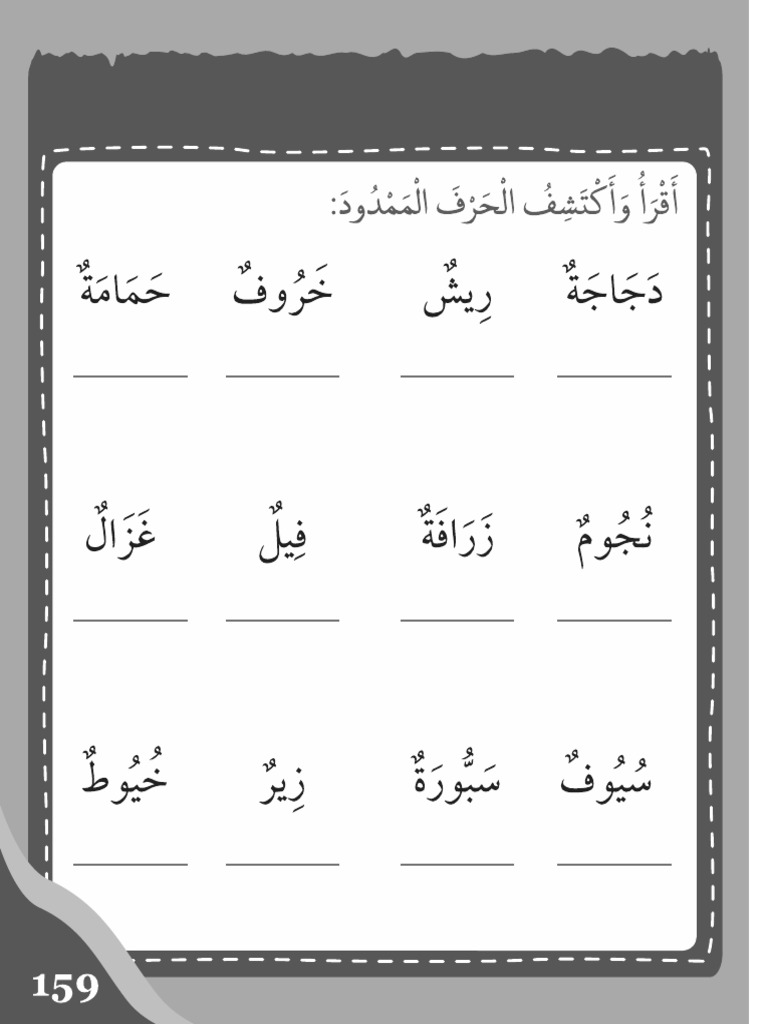 أَقْرَأُ وَأَكْتَشِفُ الْحَرْفَ الْمَمْدُودَ:
دَجَاجَةٌ رِيشٌ خَرُوفٌ حَمَامَةٌ
نُجُومٌ زَرَافَةٌ فِيلٌ غَزَالٌ
سُيُوفٌ سَبُّورَةٌ زِيرٌ خُيُوطٌ
159